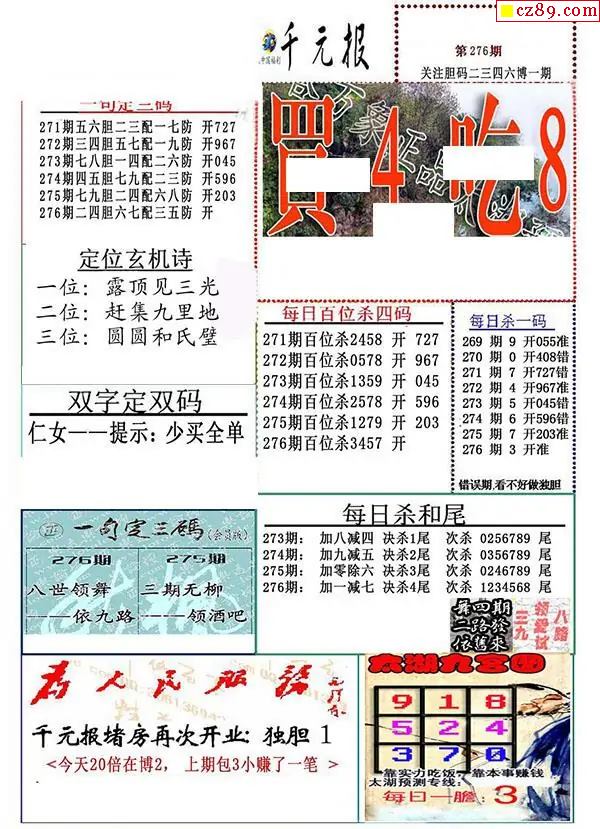 cz89.com
千元报
中国福利
第276期
关注胆码二三四六博一期
一句定三码
271期五六胆二三配一七防 开727
272期三四胆五七配一九防 开967
273期七八胆一四配二六防 开045
274期四五胆七九配二三防 开596
275期七九胆二四配六八防 开203
276期二四胆六七配三五防 开
買4吃8
定位玄机诗
一位：露顶见三光
二位：赶集九里地
三位：圆圆和氏璧
每日百位杀四码
271期百位杀2458 开 727
272期百位杀0578 开 967
273期百位杀1359 开 045
274期百位杀2578 开 596
275期百位杀1279 开 203
276期百位杀3457 开
每日杀一码
269 期 9 开055准
270 期 0 开408错
271 期 7 开727错
272 期 4 开967准
273 期 5 开045错
274 期 6 开596错
275 期 7 开203准
276 期 3 开准
错误期,看不好做独胆
双字定双码
仁女——提示：少买全单
正 一句定三碼(会员版)
276期 275期
八世领舞 三期无柳
——依九路 ——领酒吧
每日杀和尾
273期： 加八减四 决杀1尾 次杀 0256789 尾
274期： 加九减五 决杀2尾 次杀 0356789 尾
275期： 加零除六 决杀3尾 次杀 0246789 尾
276期： 加一减七 决杀4尾 次杀 1234568 尾
舞四期
二路發
依舊來
八路
领爱试
三九
为人民服务
千元报堵房再次开业：独胆 1
<今天20倍在博2， 上期包3小赚了一笔 >
太湖九宫图
9 1 8
5 2 4
3 7 0
靠实力吃饭 靠本事赚钱
太湖预测专线:
每日一膽:3